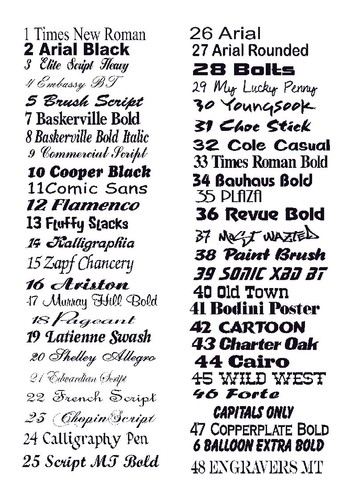 1 Times New Roman
2 Arial Black
3 Elite Script Heavy
4 Embassy BT
5 Brush Script
7 Baskerville Bold
8 Baskerville Bold Italic
9 Commercial Script
10 Cooper Black
11Comic Sans
12 Flamenco
13 Fluffy Slacks
14 Kalligraphia
15 Zapf Chancery
16 Ariston
17 Murray Hill Bold
18 Pageant
19 Latienne Swash
20 Shelley Allegro
21 Edwardian Script
22 French Script
23 ChopinScript
24 Calligraphy Pen
25 Script MT Bold
26 Arial
27 Arial Rounded
28 Bolts
29 My Lucky Penny
30 Youngsook
31 Choc Stick
32 Cole Casual
33 Times Roman Bold
34 Bauhaus Bold
35 PLAZA
36 Revue Bold
37 MOST WAZTED
38 Paint Brush
39 SONIC XBD BT
40 Old Town
41 Bodini Poster
42 CARTOON
43 Charter Oak
44 Cairo
45 WILD WEST
46 Forte
CAPITALS ONLY
47 COPPERPLATE BOLD
6 BALLOON EXTRA BOLD
48 ENGRAVERS MT